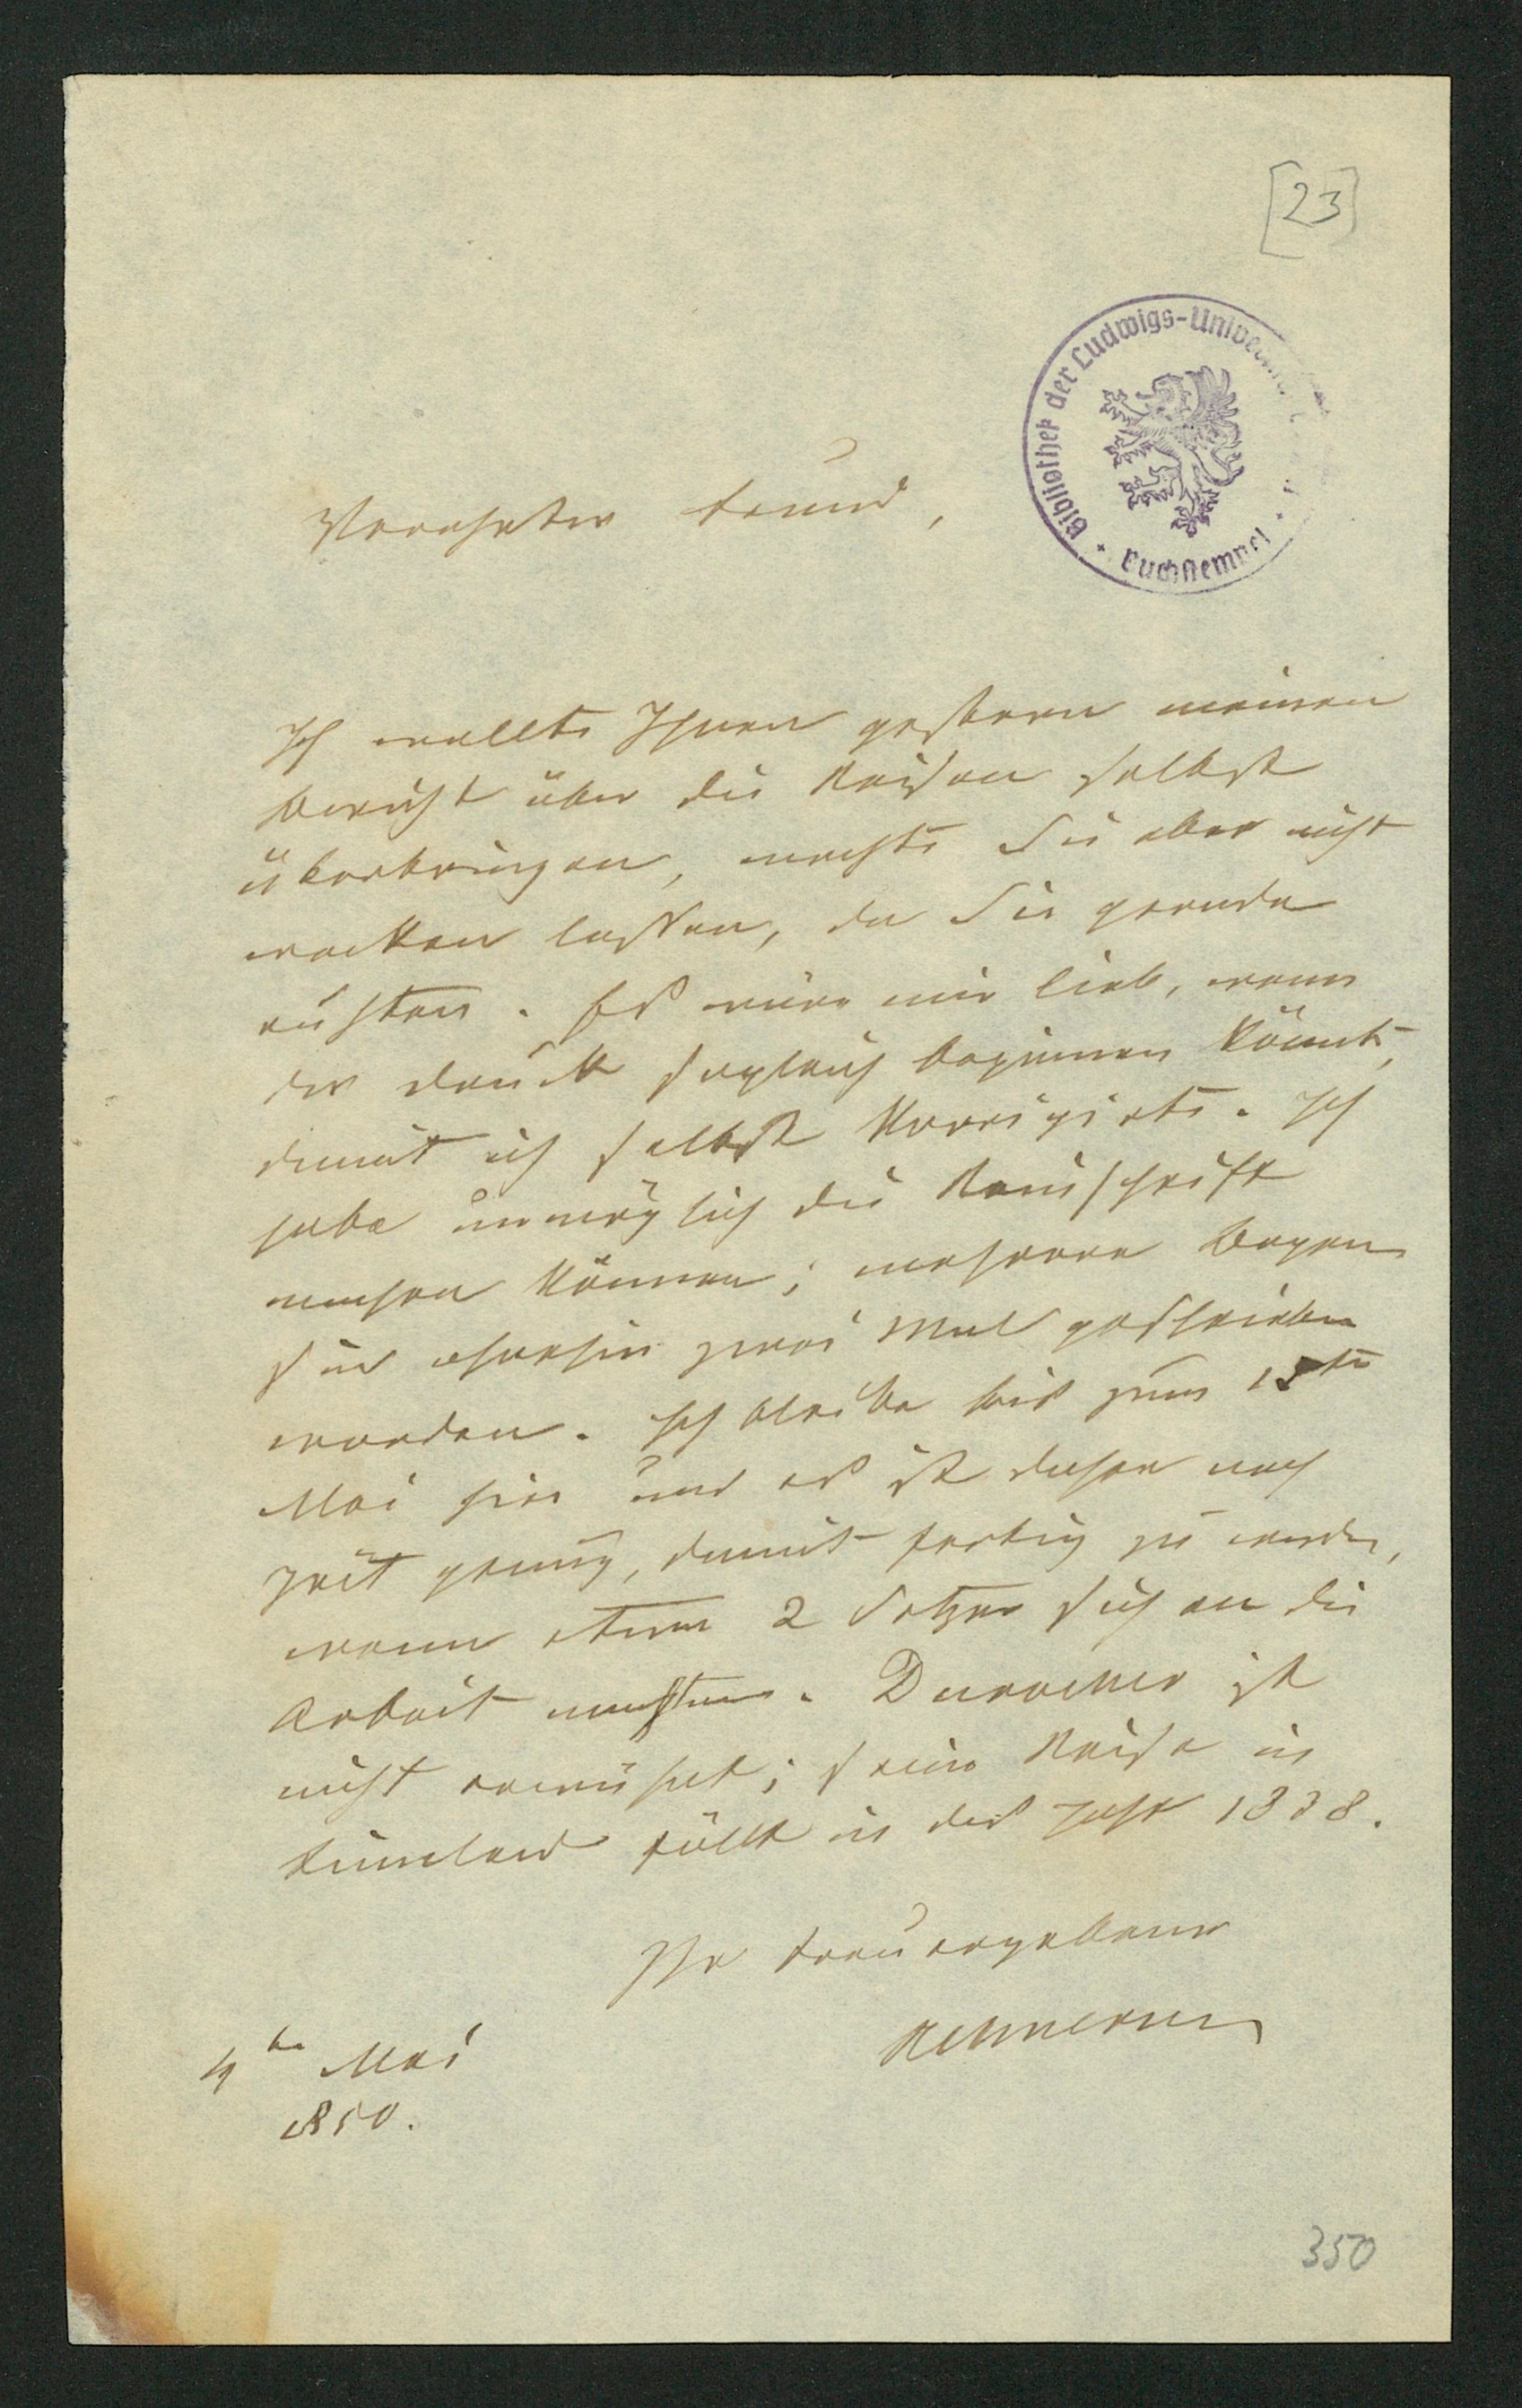 [23]
Bibliothek der Ludwigs-Univer
Buchstempel
Verehrter Freund,
Ich wollte Ihnen gestern meinen
Bericht über die Reisen selbst
überbringen, mochte Sie aber nicht
wecken lassen, da Sie gerade
ruhten. Es wäre mir lieb, wenn
der Druck sogleich beginnen könnte,
damit ich selbst korrigirte. Ich
habe unmöglich die Reinschrift
machen können; mehrere Bogen
sind ohnehin zwei Mal geschrieben
worden. Ich bleibe bis zum 15ten
Mai hier und es ist daher noch
Zeit genug, damit fertig zu werden,
wenn etwa 2 Setzer sich an die
Arbeit machten. Durocher ist
nicht erwähnt; seine Reise in
Finnland fällt in das Jahr 1838.
Ihr treu ergebener
4ten Mai
1850.
350